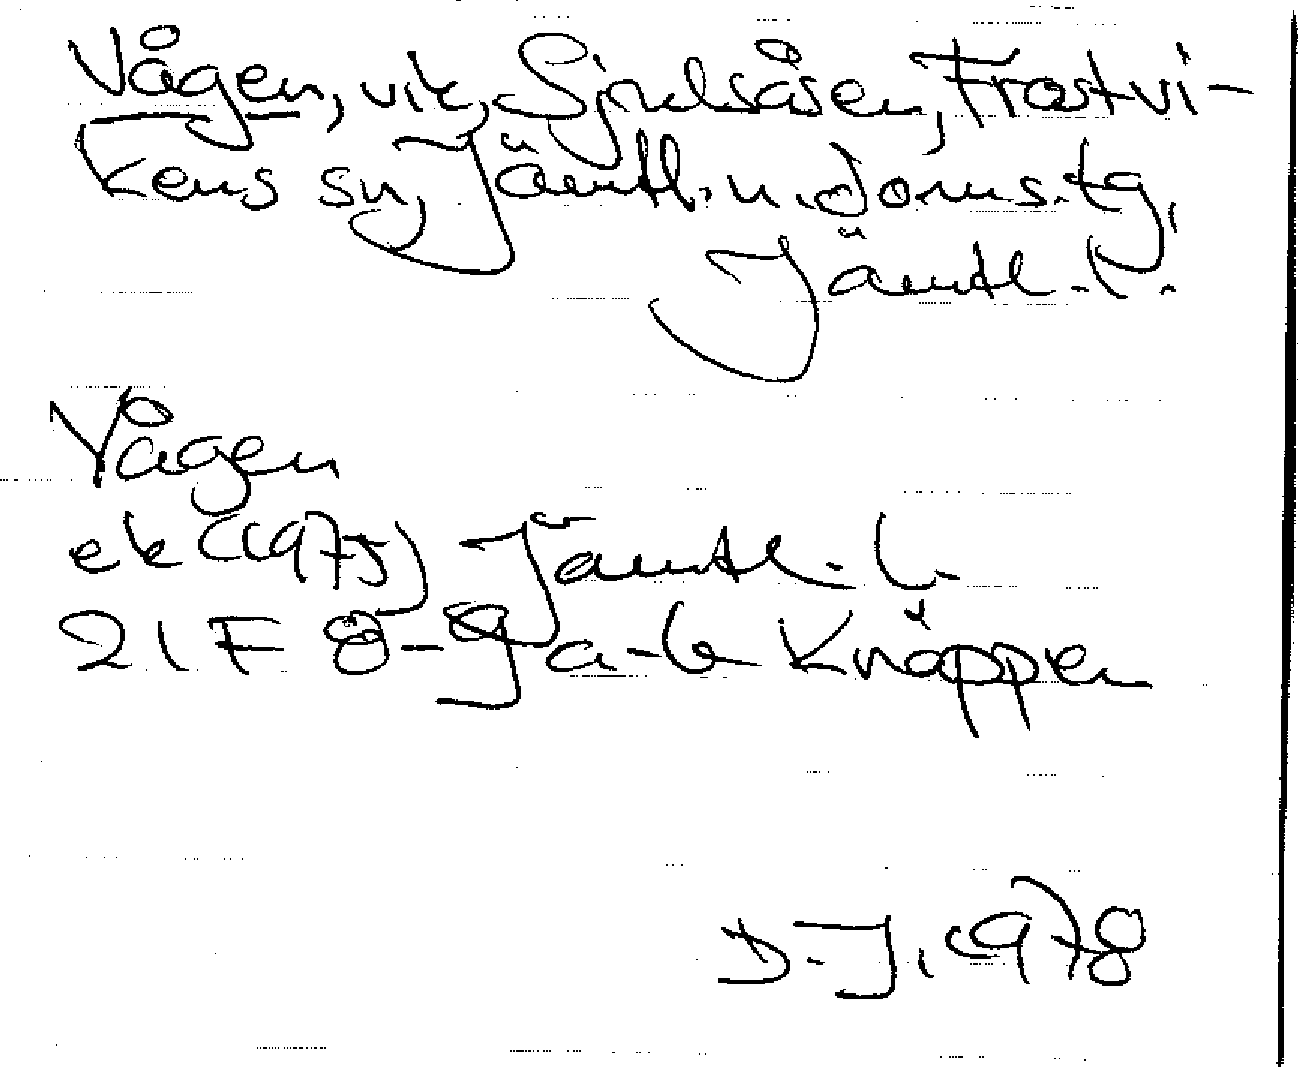 Vågen, vik, Sjoulsåsen, Frostvi-
kens sn, Jämtl. n. doms.tg,
Jämtl. l.
Vågen
ek (1975) Jämtl. l.
21F 8-9 a-b Knäppen
D.J. 1978